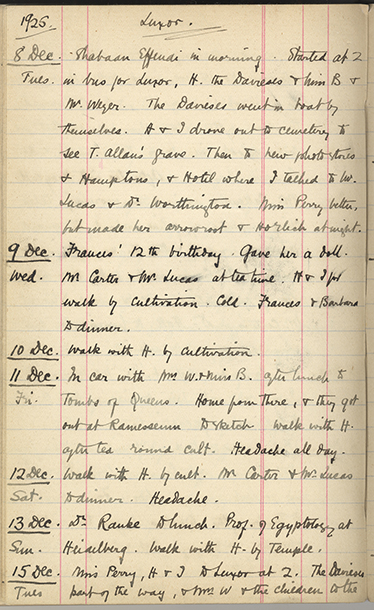 1925. Luxor.
8 Dec. Shabaan Effendi in morning. Started at 2
Tues. in bus for Luxor, H. the Davieses & Miss B &
Mr. Weyer. The Davieses went in boat by
themselves. H & I drove out to cemetery to
see T. Allan's grave. Then to new photo stores
& Hamptons, & Hotel where I talked to Mr.
Lucas & Dr. Worthington. Miss Perry better,
but made her arrowroot & Horlick at night.
9 Dec. Frances' 12th birthday. Gave her a doll.
Wed. Mr Carter & Mr. Lucas at tea time. H & I for
walk by cultivation. Cold. Frances & Barbara
D dinner.
10 Dec. Walk with H. by Cultivation.
11 Dec. In car with Mrs W. & Miss B. after lunch to
Fri. Tombs of Queens. Home from there, & they got
out at Ramesseum D sketch Walk with H.
after tea round cult. Headache all day.
12 Dec. Walk with H. by cult. Mr Carter & Mr. Lucas
Sat. D dinner. Headache.
13 Dec. Dr. Ranke D lunch. Prof. of Egyptology at
Sun. Heidelberg. Walk with H. by Temple.
15 Dec. Miss Perry, H & I D Luxor at 2. The Davieses
Tues part of the way, & Mrs W & the children to the